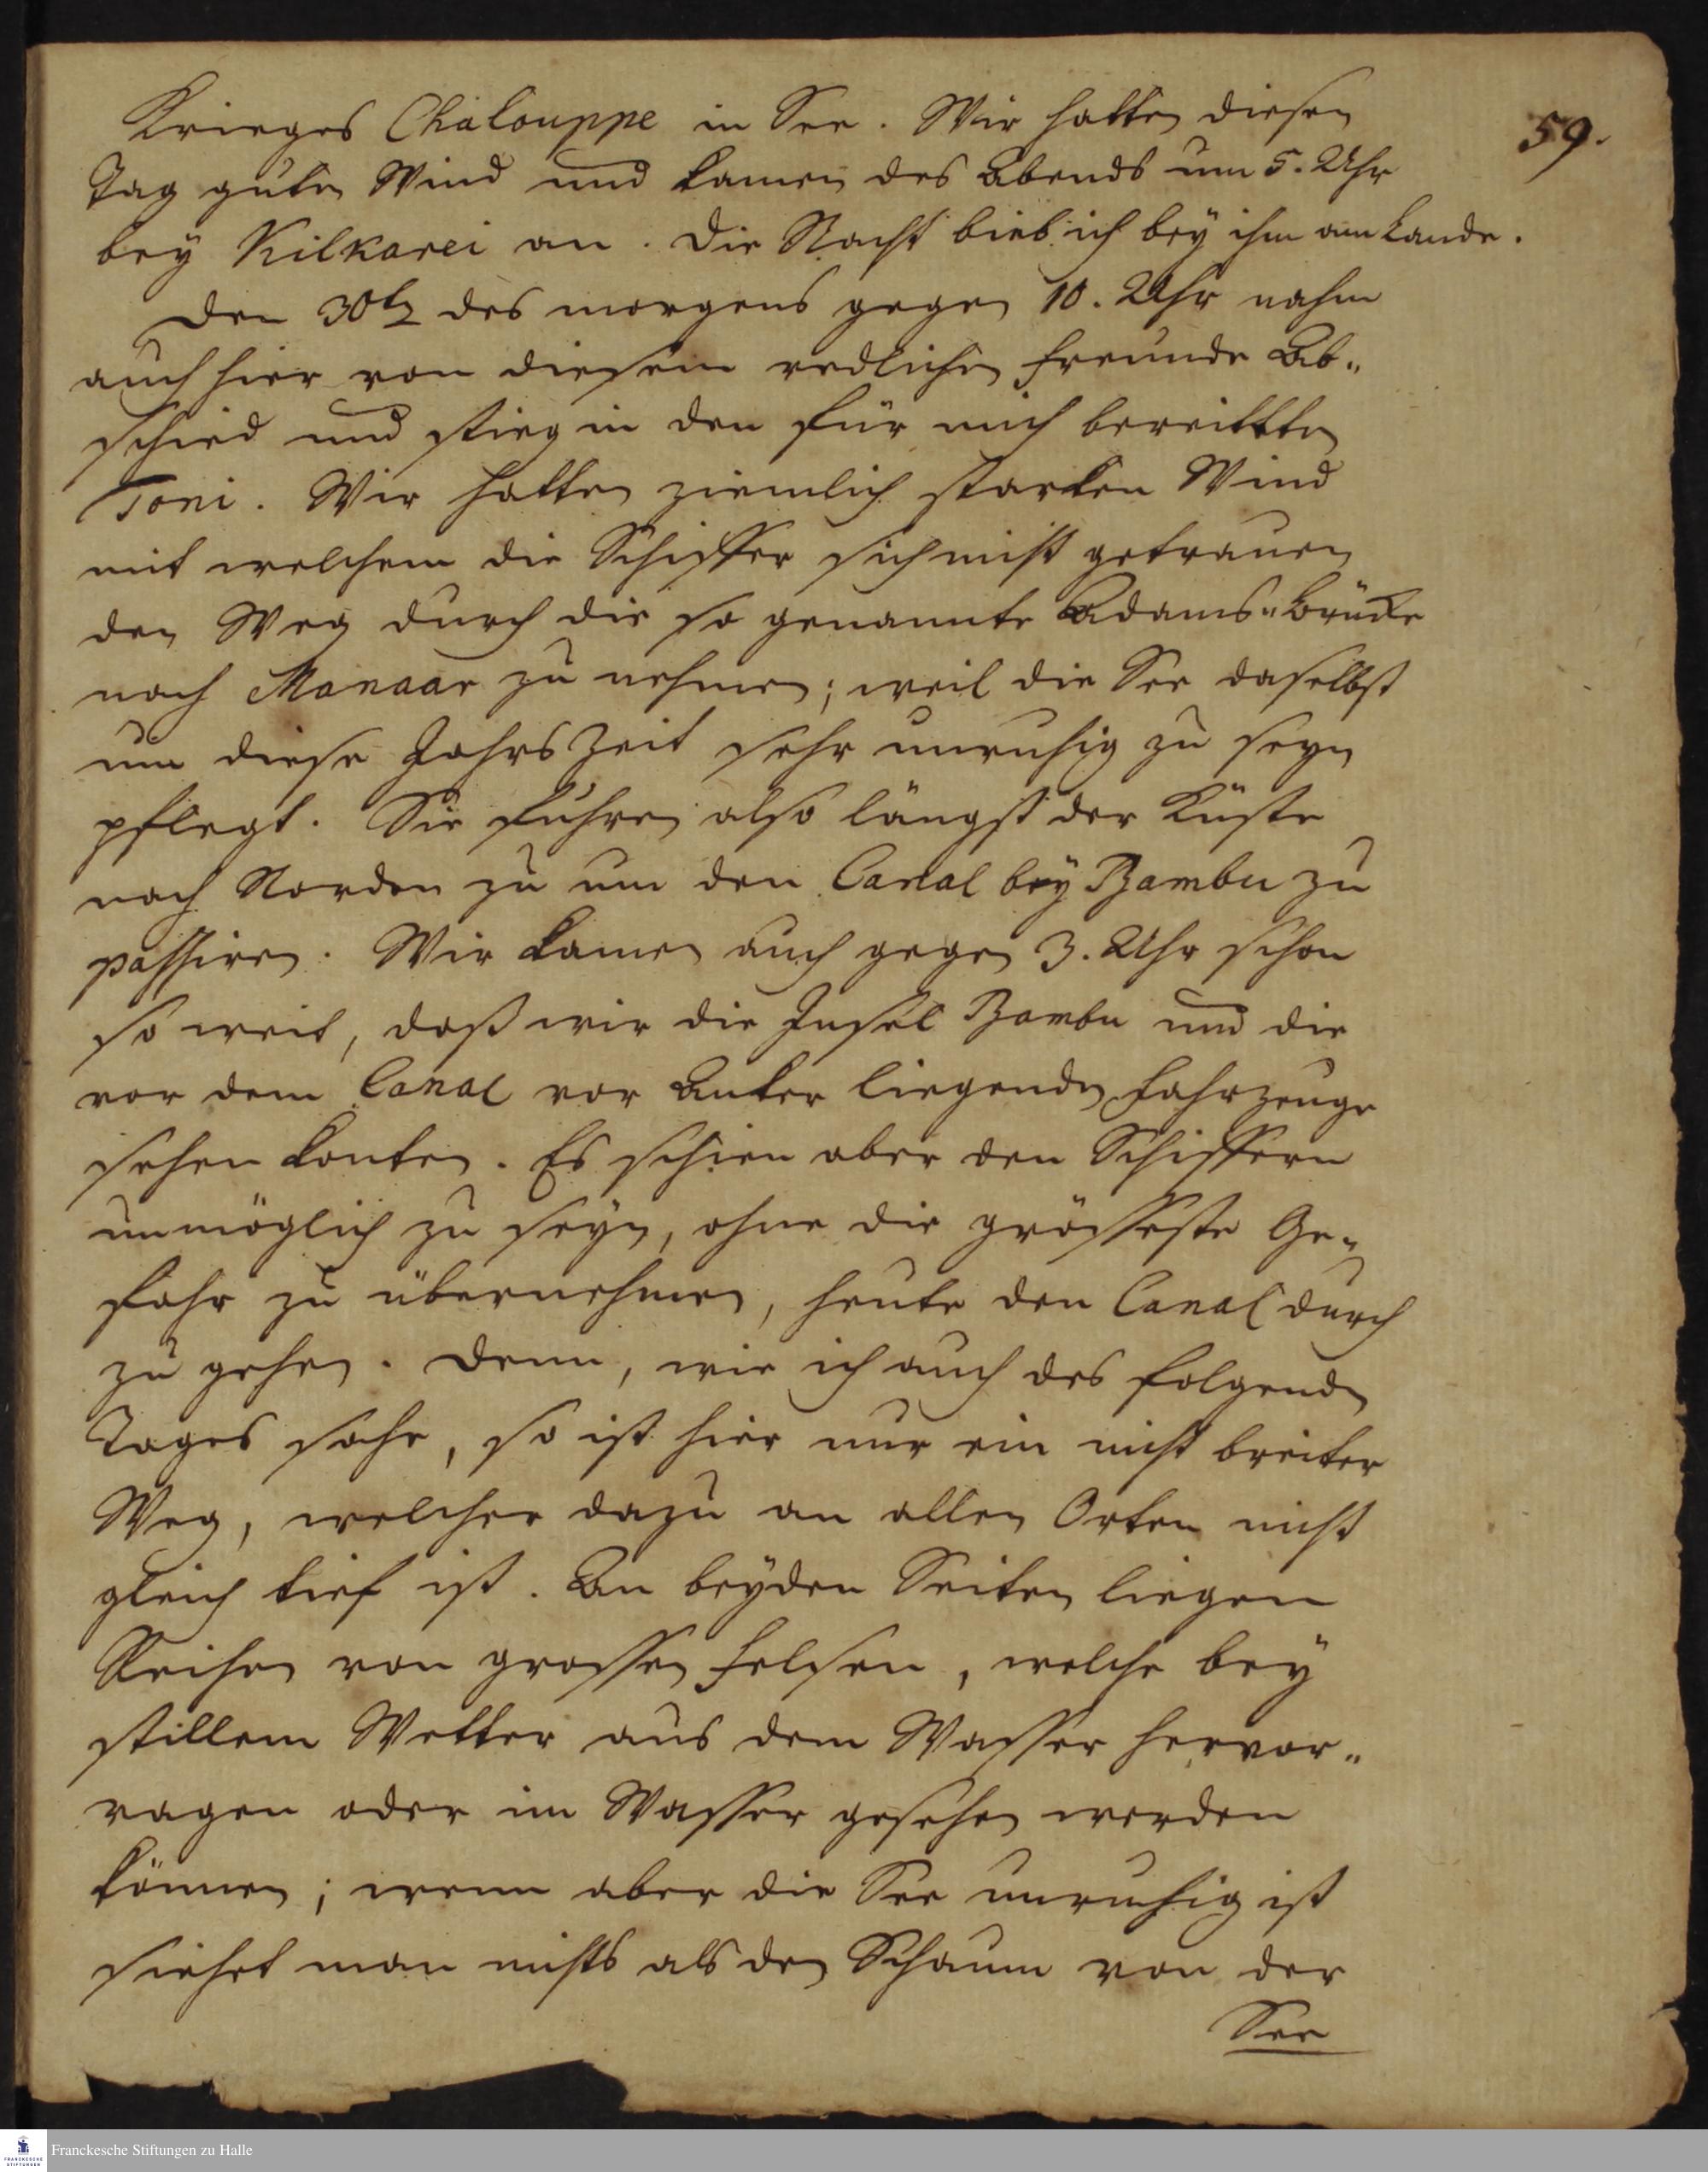 59.
Krieges Chalouppe in See. Wir hatten diesen
Tag guten Wind und kamen des Abends um 5. Uhr
bey Kilkarei an. Die Nacht bieb ich bey ihm am Lande.
Den 30ten des morgens gegen 10. Uhr nahm
auch hier von diesem redlichen Freunde Ab-
schied und stieg in den für mich bereitten
Toni. Wir hatten ziemlich starken Wind
mit welchem die Schiffer sich nicht getrauen
den Weg durch die so genannte Adams-Brücke
nach Manaar zu nehmen; weil die See daselbst
um diese Jahrs Zeit sehr unruhig zu seyn
pflegt. Sie fuhren also längst der Küste
nach Norden zu um den Canal bey Bambu zu
passiren. Wir kamen auch gegen 3. Uhr schon
so weit, daß wir die Insel Bambu und die
vor dem Canal vor Anker liegenden Fahrzeuge
sehen konten. Es schien aber den Schiffern
unmöglich zu seyn, ohne die grösseste Ge-
fahr zu übernehmen, heute den Canal durch
zu gehen. Denn, wie ich auch des folgenden
Tages sahe, so ist hier nur ein nicht breiter
Weg, welcher dazu an allen Orten nicht
gleich tief ist. An beyden Seiten liegen
Reihen von grossen Felsen, welche bey
stillem Wetter aus dem Wasser hervor-
ragen oder im Wasser gesehen werden
können; wenn aber die See unruhig ist
siehet man nichts als den Schaum von der
See
Franckesche Stiftungen zu Halle